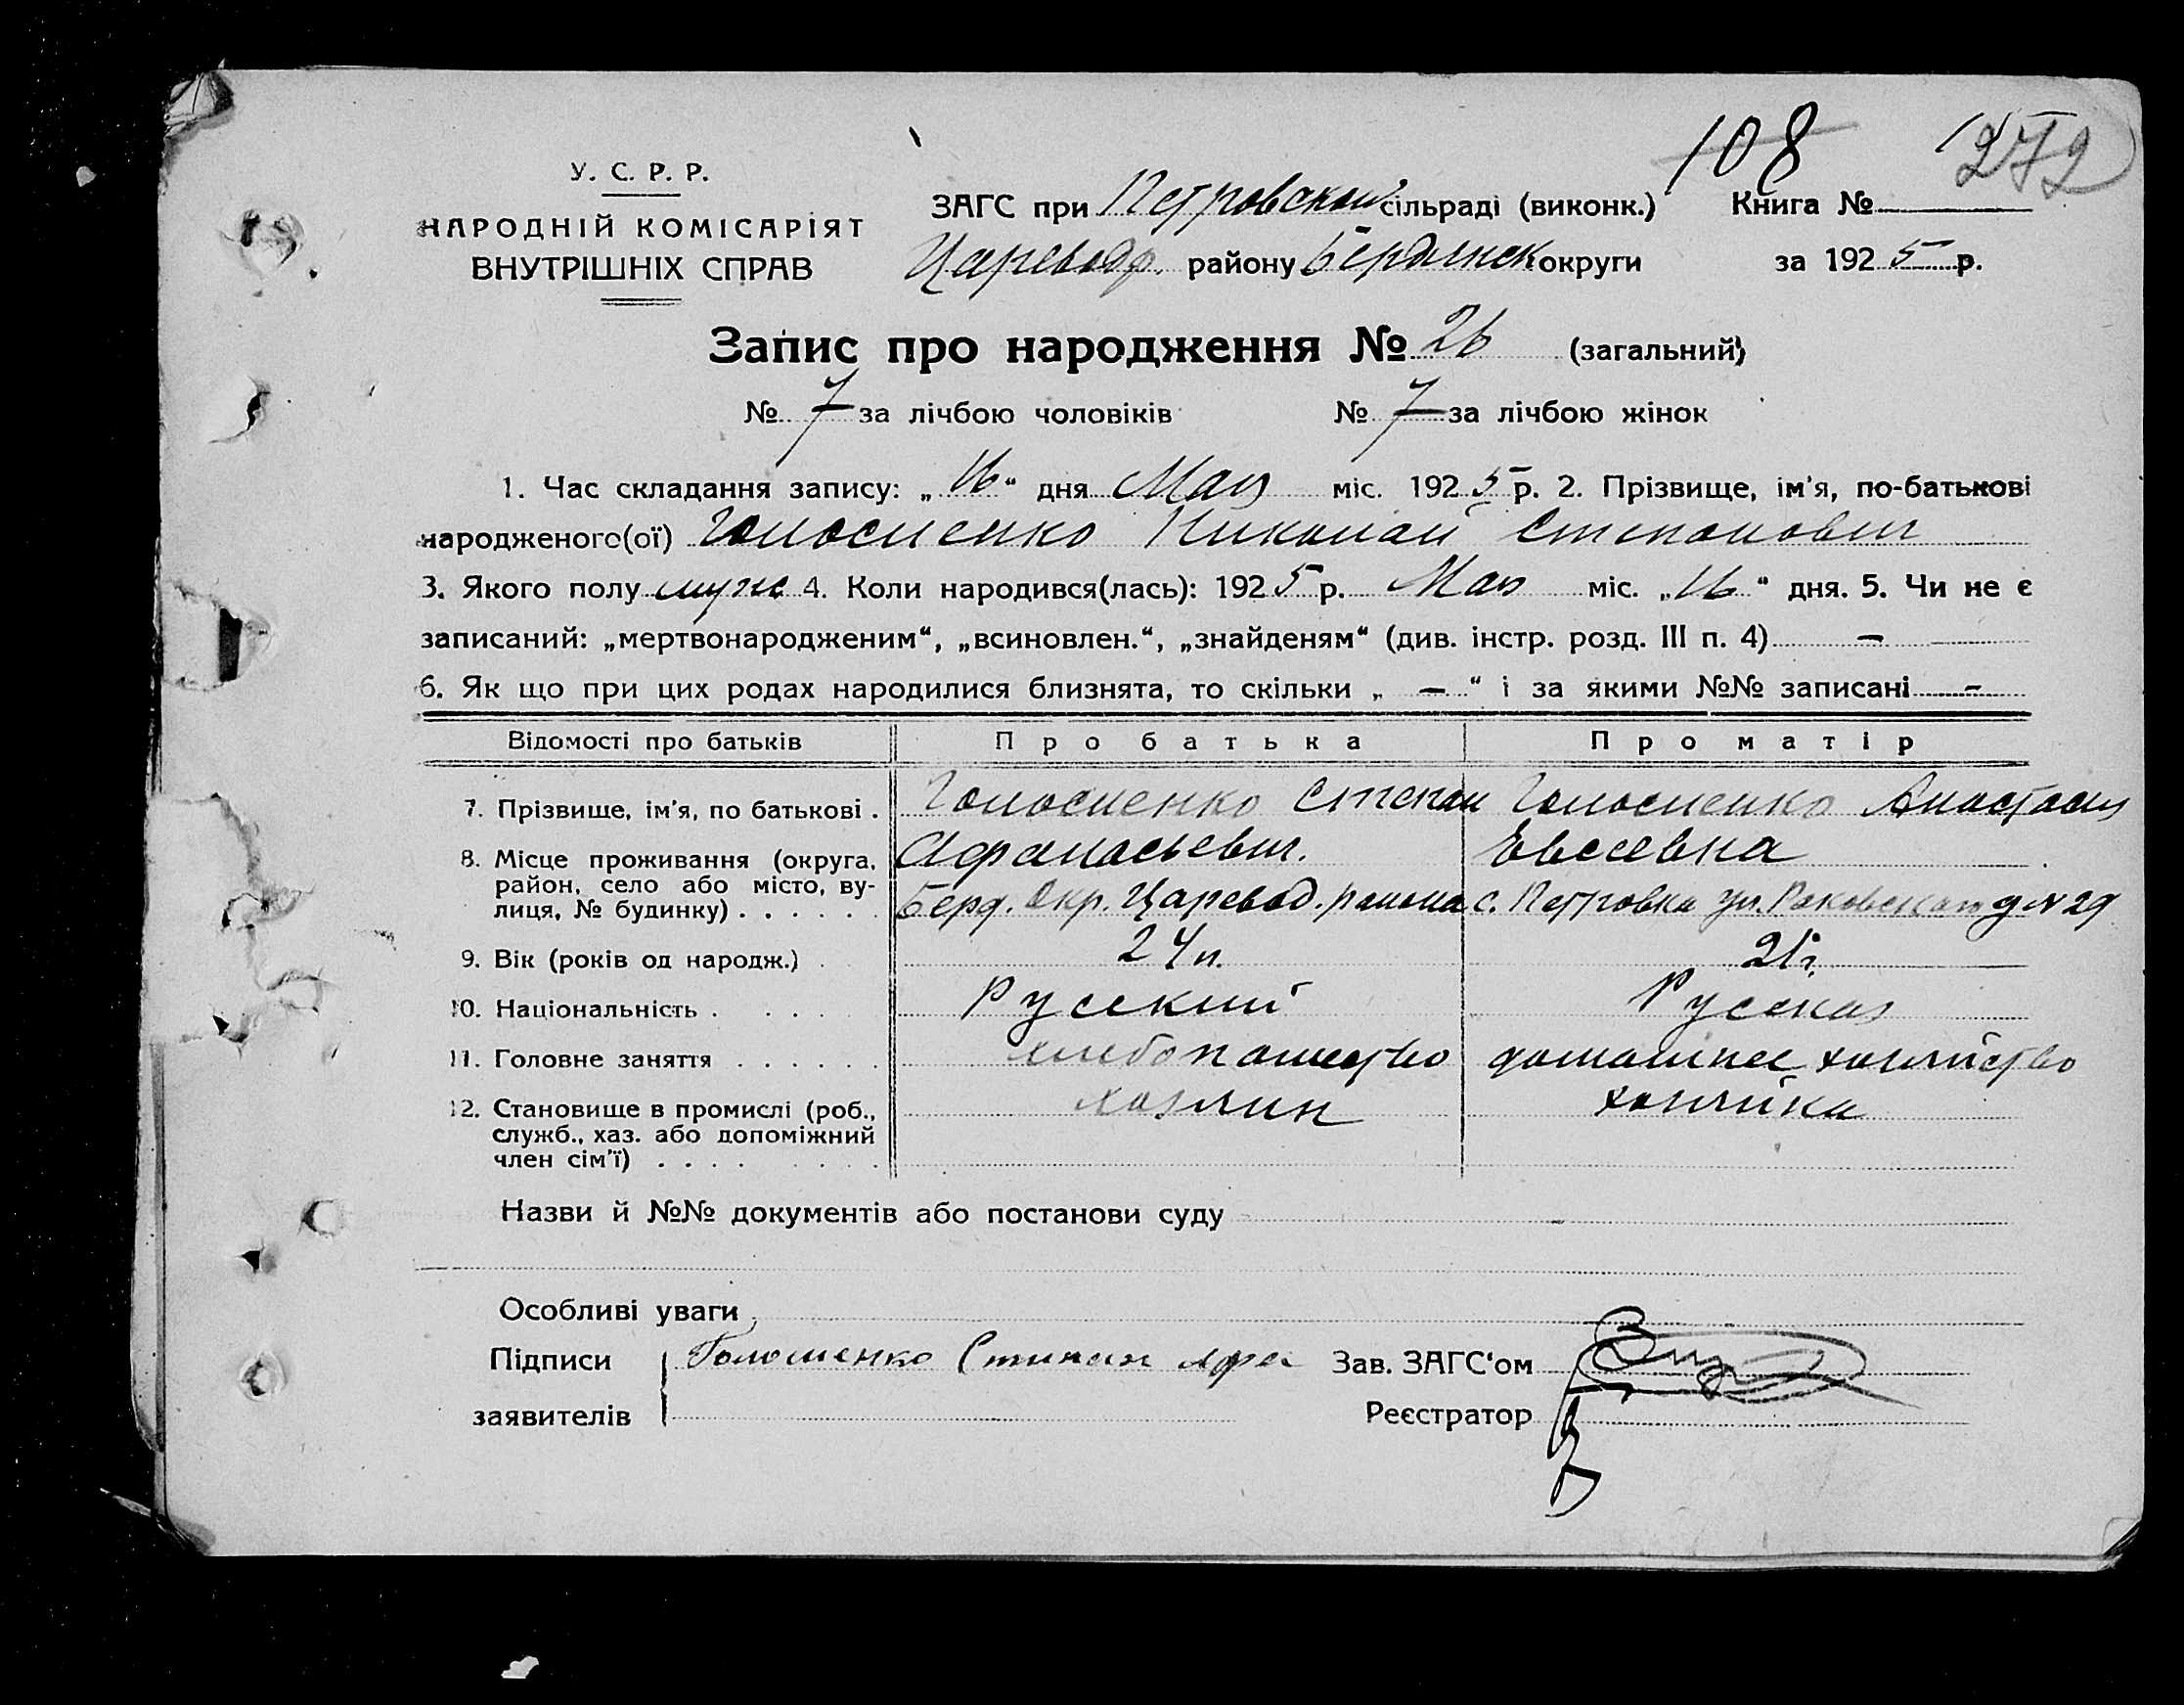 108 272
У. С. Р. Р.
НАРОДНІЙ КОМІСАРІЯТ
ВНУТРІШНІХ СПРАВ
ЗАГС при Петровской сільраді (виконк.) Книга №
Царевод. району Бердянск округи за 1925 р.
Запис про народження № 26 (загальний)
№ 7 за лічбою чоловіків № 7 за лічбою жінок
1. Час складання запису: „16“ дня Мая міс. 1925 р. 2. Прізвище, ім'я, по-батькові
народженого(ої) Николай Степанович
3. Якого полу муж 4. Коли народився(лась): 1925 р. Мая міс. „16“ дня. 5. Чи не є
записаний: „мертвонародженим“, „всиновлен.“, „знайденям“ (див. інстр. розд. III п. 4) —
6. Як що при цих родах народилися близнята, то скільки „ — “ і за якими №№ записані —
Відомості про батьків Про батька Про матір
7. Прізвище, ім'я, по батькові . Степан Анастасия
Афанасьевич. Евсеевна
8. Місце проживання (округа, район, село або місто, вулиця, № будинку) . . . . . . Берд. Окр. Царевод. района с. Петровка ул. Раковского д № 29
9. Вік (років од народж.) . 24 л. 21 г.
10. Національність . . . . . Русский Русская
11. Головне заняття . . . . . . хлебопашество домашнее хозяйство
12. Становище в промислі (роб., служб., хаз. або допоміжний член сім'ї) . . . . . . . . хозяин хозяйка
Назви й №№ документів або постанови суду —
Особливі уваги
Підписи Степан Афа Зав. ЗАГС'ом
заявителів Реєстратор